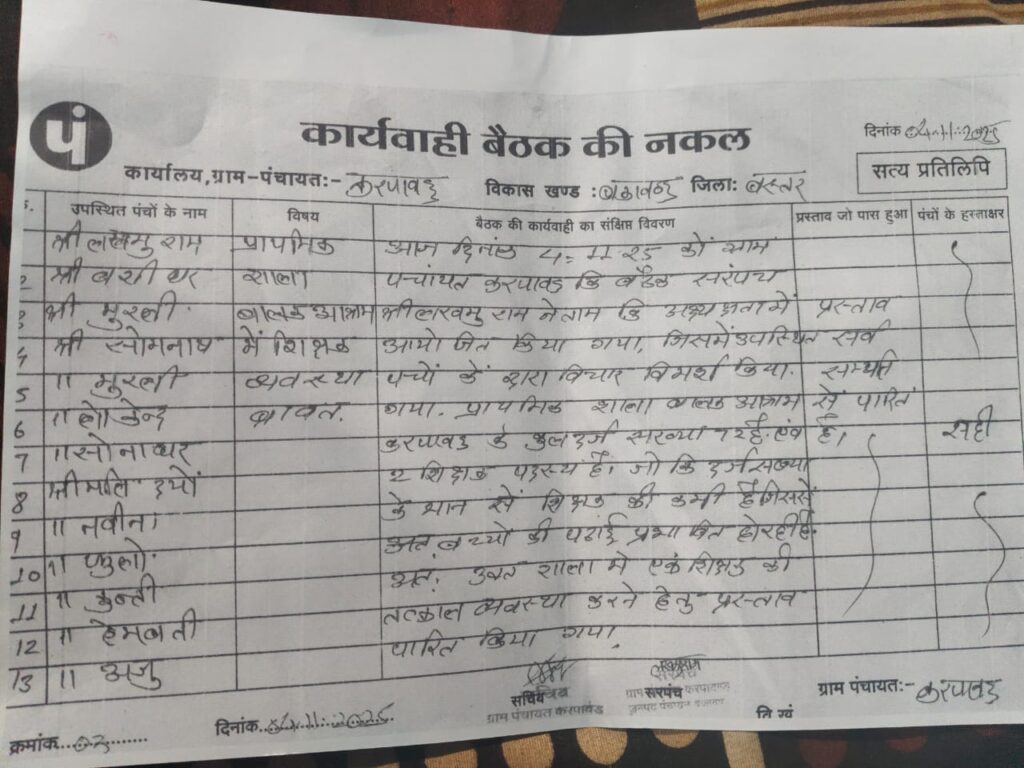 पं
कार्यवाही बैठक की नकल
दिनांक 04.11.2025
सत्य प्रतिलिपि
कार्यालय,ग्राम-पंचायतः- करपावण्ड विकास खण्ड : बकावण्ड जिला: बस्तर
उपस्थित पंचों के नाम विषय बैठक की कार्यवाही का संक्षिप्त विवरण प्रस्ताव जो पास हुआ पंचों के हस्ताक्षर
श्री लखमु राम प्राथमिक आज दिनांक 4=11=25 को ग्राम
2 श्री बंशीधर शाला पचांयत करपावंड कि बैठक सरंपच
3 श्री मुरली. बालक आश्रम श्री लखमु राम नेताम कि अध्यक्षता में प्रस्ताव
4 श्री सोमनाथ में शिक्षक आयोजित किया गया, जिसमें उपस्थित सर्व
5 11 मुरली व्यवस्था पचों के द्वारा विचार विमर्श किया. सम्पति
6 11 बाबत. गया. प्राथमिक शाला बालक आश्रम से पारित
7 11 सोनाधर करपावंड के कुल दर्ज संख्या 72 है. एंव है, सही
8 2 शिक्षक पदस्थ हैं, जो कि दर्ज संख्या
9 11 नवीना के मान से शिक्षक की कमी है जिससे
10 11 फुलो. अत. बच्चो की पढाई प्रभावित हो रही है.
11 11 कुन्ती अत. उक्त शाला मे एक शिक्षक की
12 11 हेमबती तत्काल व्यवस्था करने हेतु प्रस्ताव
13 11 अंजु पारित किया गया,
सचिव
ग्राम पंचायत करपावंड
सरपंच
ग्राम पंचायतः- करपावंड
क्रमांक...02........ दिनांक..04.11.2025.